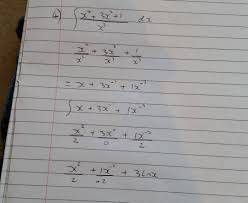 4) ∫ x⁴ + 3x² + 1 / x³ dx
x⁴/x³ + 3x²/x³ + 1/x³
= x + 3x⁻¹ + 1x⁻³
∫ x + 3x⁻¹ + 1x⁻³
x²/2 + 3x⁰/0 + 1x⁻²/2
x²/2 + 1x⁻²/-2 + 3lnx